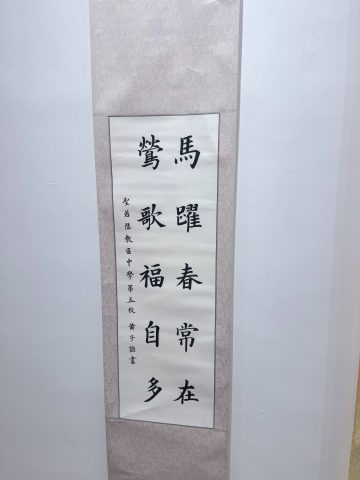 馬躍春常在
鶯歌福自多
聖若瑟教區中學第五校 黃子語書